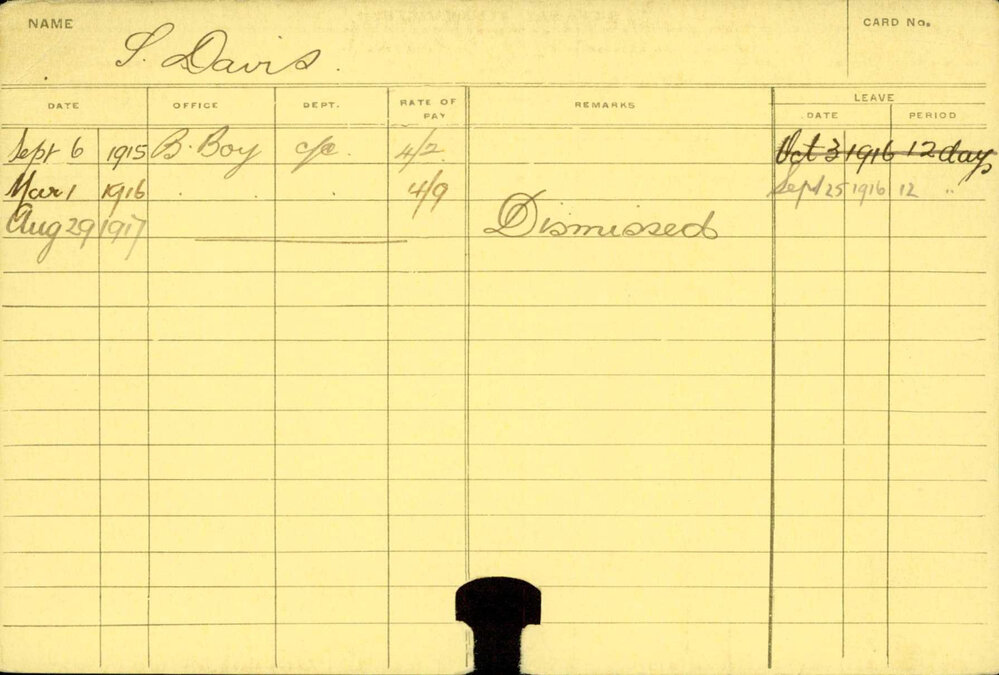 NAME S. Davis. CARD No.
DATE OFFICE DEPT. RATE OF PAY REMARKS LEAVE
DATE PERIOD
Sept 6 1915 B. Boy c/c. 4/2 Oct 3 1916 12 days
Mar 1 1916 . . 4/9 Sept 25 1916 12 "
Aug 29 1917 Dismissed